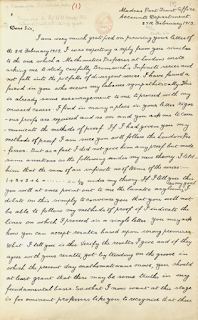 (1)
Madras Port Trust Office
Accounts Department
27th February 1913
Dear Sir,
I am very much gratified on perusing your letter of
the 8th February 1913. I was expecting a reply from you similar
to the one which a Mathematics Professor at London wrote
asking me to study carefully Bromwich's Infinite Series and
not fall into the pitfalls of divergent series. I have found a
friend in you who views my labours sympathetically. This
is already some encouragement to me to proceed
I find in many a place in your letter rigor-
ous proofs are required and so on and you ask me to com-
municate the methods of proof. If I had given you my
methods of proof I am sure you will follow the London Pro-
fessor. But as a fact I did not give him any proof but made
some assertions as the following under my new theory. I told
him that the sum of an infinite no. of terms of the series
1+2+3+4+ ... = -1/12 under my theory. If I tell you this
you will at once point out to me the lunatic asylum as my goal. I
dilate on this simply to convince you that you will not
be able to follow my methods of proof if I indicate the
lines on which I proceed in a single letter. You may ask
how you can accept results based upon wrong premises.
What I tell you is this. Verify the results I give and if they
agree with your results, got by treading on the groove in
which the present day mathematicians move, you should
at least grant that there may be some truths in my
fundamental basis. So what I now want at this stage
is for eminent professors like you to recognize that there